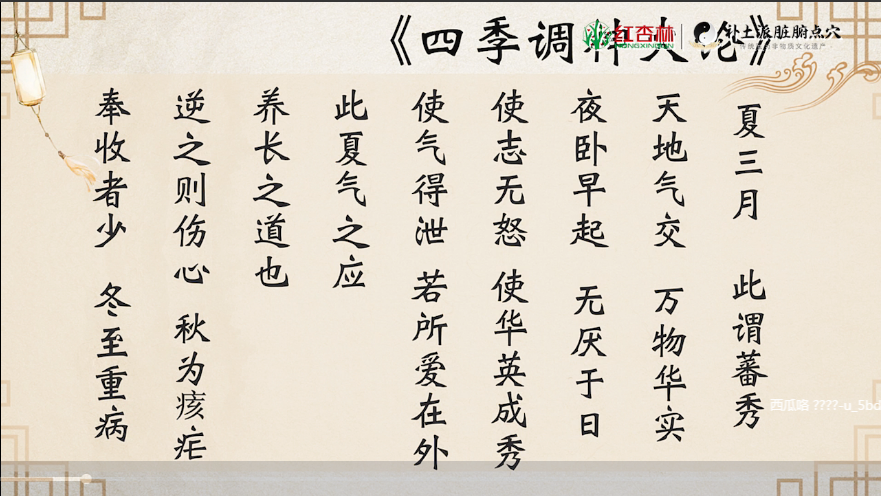 《四季调神大论》
红杏林
HONGXINGLIN
补土派脏腑点穴
夏三月 此谓蕃秀
天地气交 万物华实
夜卧早起 无厌于日
使志无怒 使华英成秀
使气得泄 若所爱在外
此夏气之应
养长之道也
逆之则伤心 秋为痎疟
奉收者少 冬至重病
西瓜咯 ????-u_5bd